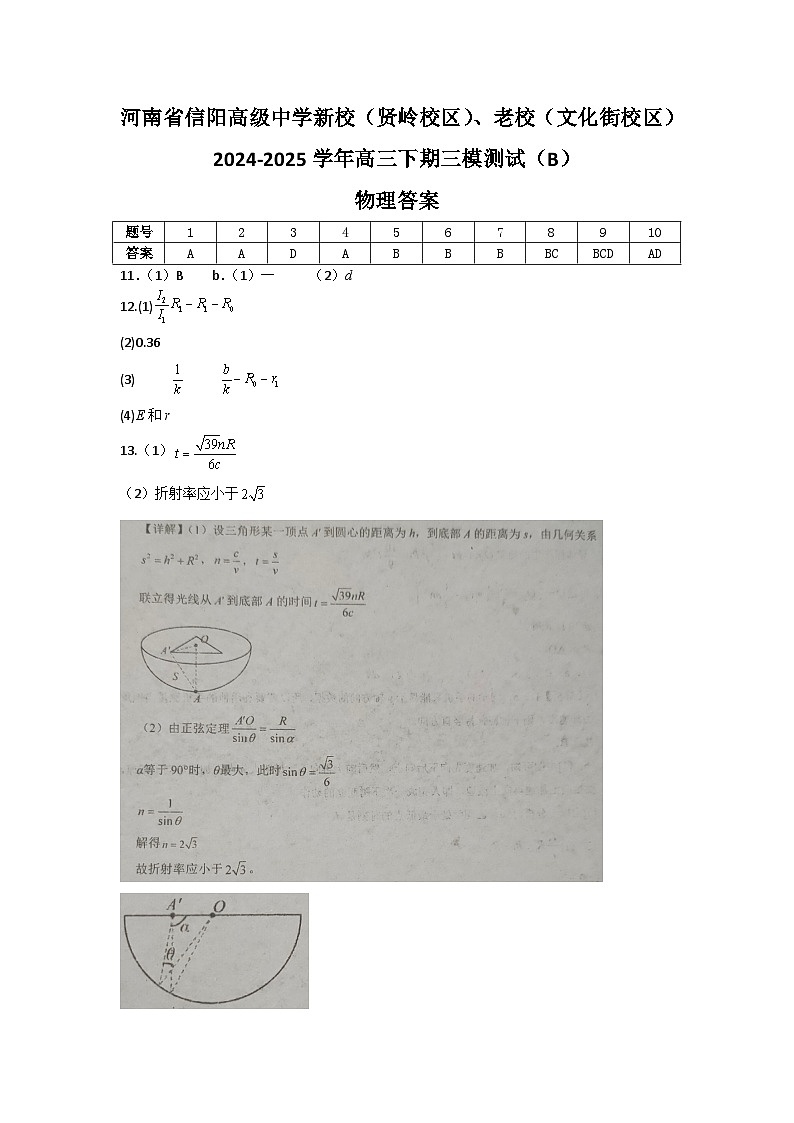 河南省信阳高级中学新校（贤岭校区）、老校（文化街校区）
2024-2025 学年高三下期三模测试（B）
物理答案
题号 1 2 3 4 5 6 7 8 9 10
答案 A A D A B B B BC BCD AD
11.（1）B b.（1）一 （2）d
12.(1) I₂/I₁ R₁ − R₁ − R₀
(2)0.36
(3) 1/k b/k − R₀ − r₁
(4)E和r
13.（1）t = √39nR/6c
（2）折射率应小于2√3
【详解】（1）设三角形某一顶点 A′ 到圆心的距离为 h，到底部 A 的距离为 s，由几何关系
s² = h² + R²，n = c/v，t = s/v
联立得光线从 A′ 到底部 A 的时间 t = √39nR/6c
O
A′
S
A
（2）由正弦定理 A′O/sinθ = R/sinα
α等于 90°时，θ最大，此时 sinθ = √3/6
n = 1/sinθ
解得 n = 2√3
故折射率应小于 2√3。
A′ O
α
θ